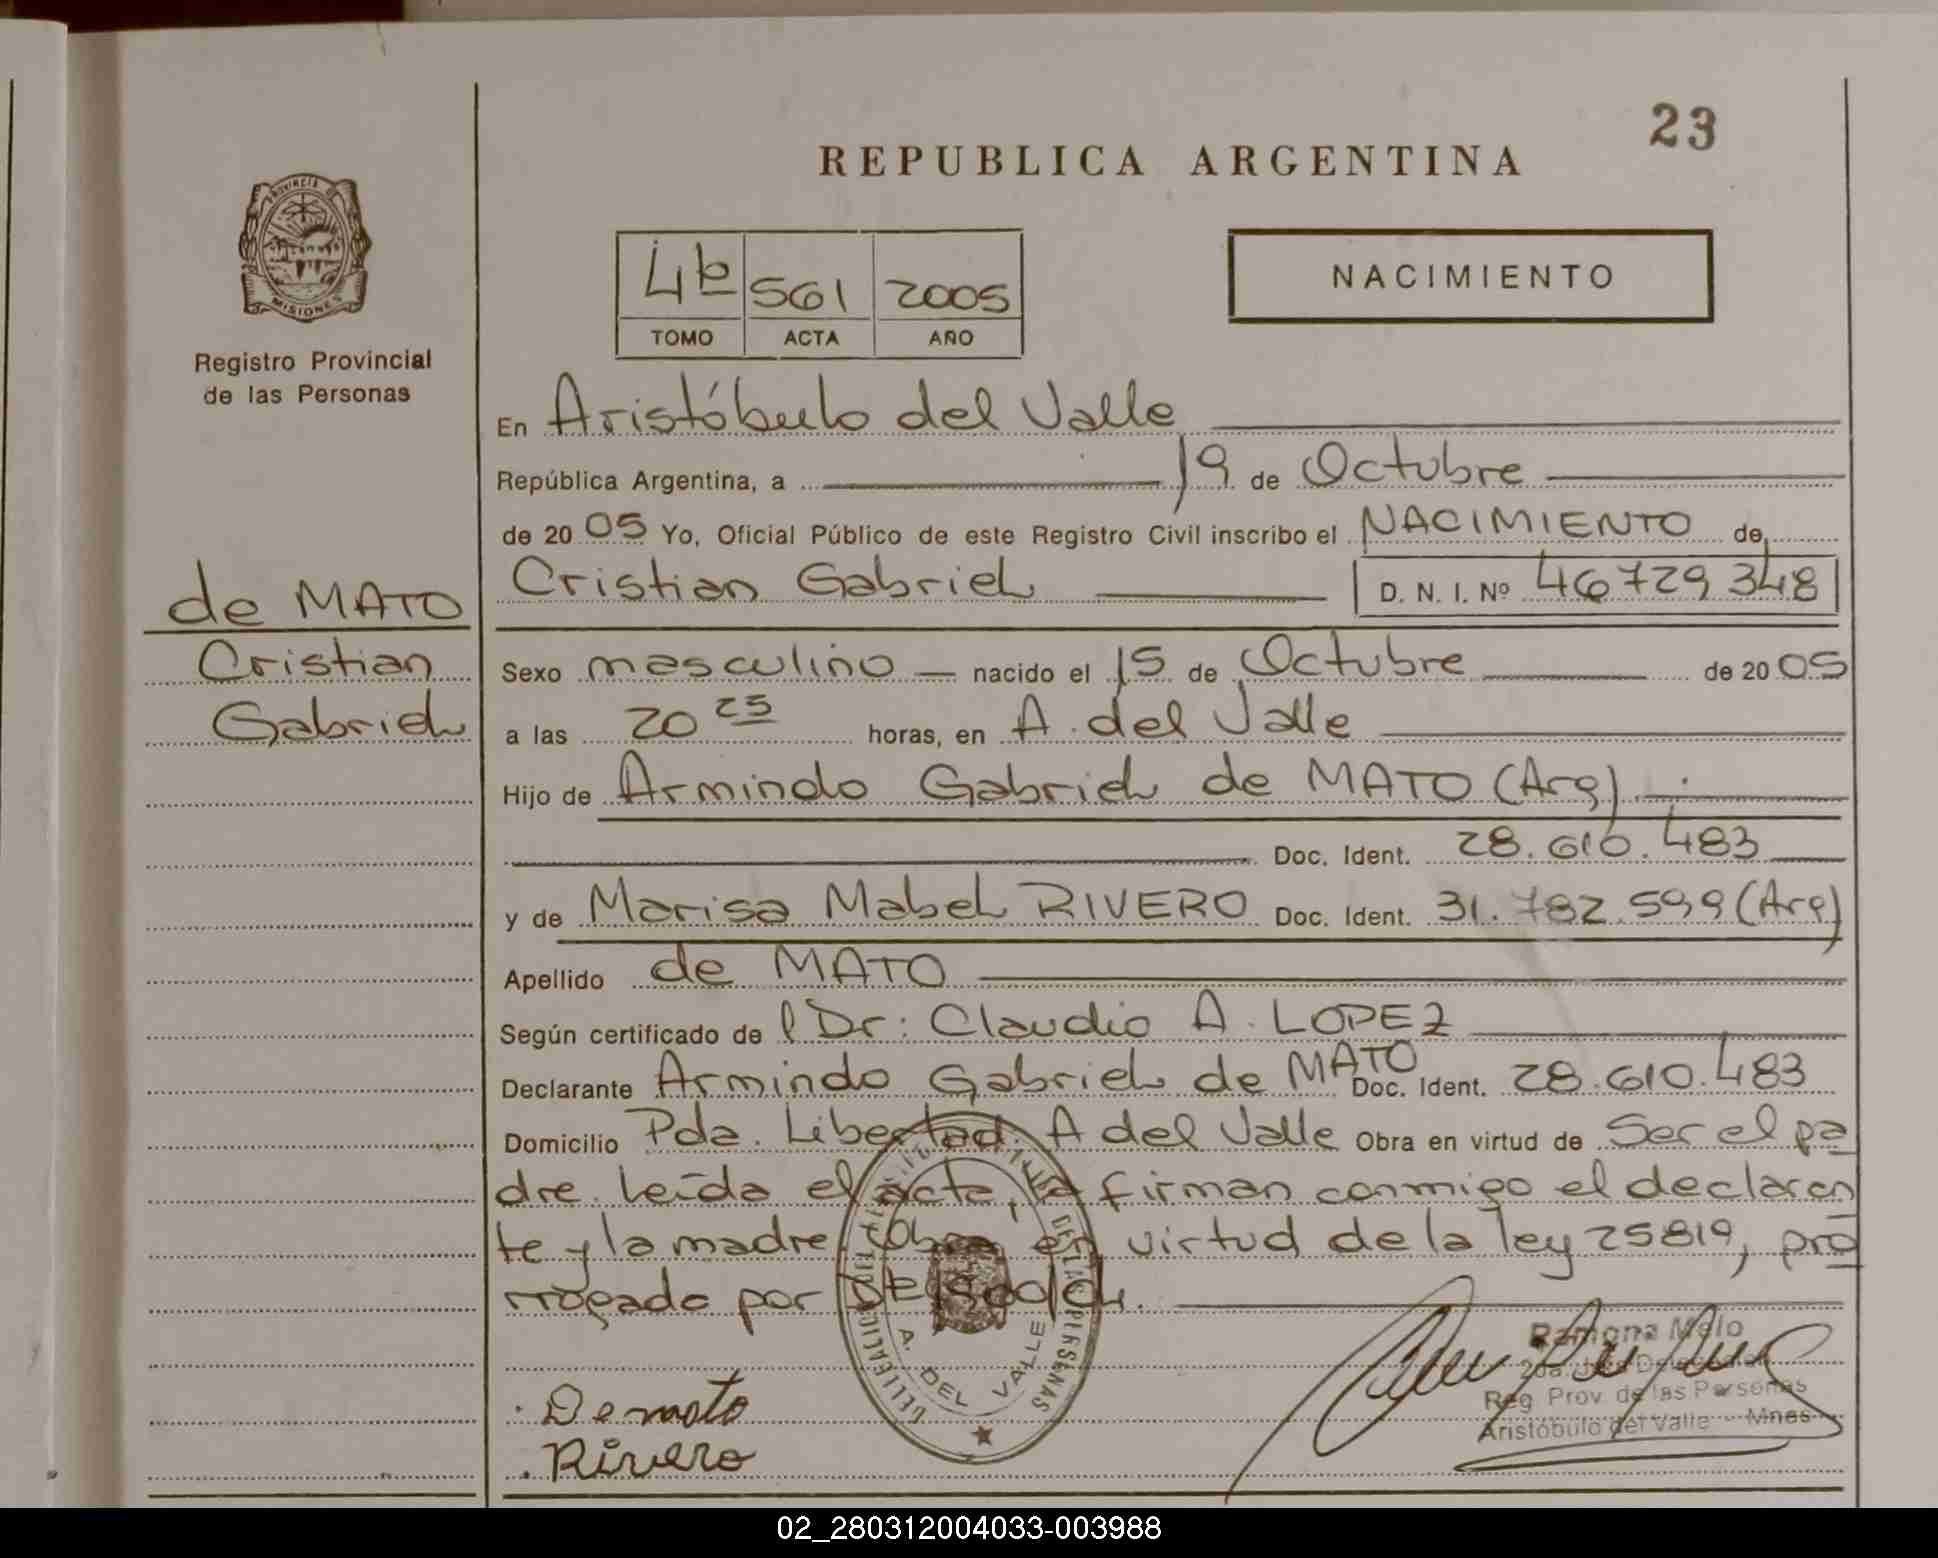 23
REPUBLICA ARGENTINA
PROVINCIA DE
MISIONES
Registro Provincial
de las Personas
4to 561 2005
TOMO ACTA AÑO
NACIMIENTO
En Aristóbulo del Valle
República Argentina, a 19 de Octubre
de 2005 Yo, Oficial Público de este Registro Civil inscribo el NACIMIENTO de
Cristian Gabriel D. N. I. Nº 46729348
de MATO
Cristian
Gabriel
Sexo masculino nacido el 15 de Octubre de 2005
a las 20 25 horas, en A. del Valle
Hijo de Armindo Gabriel de MATO (Arg)
Doc. Ident. 28.610.483
y de Marisa Mabel RIVERO Doc. Ident. 31.782.599 (Arg)
Apellido de MATO
Según certificado de l Dr: Claudio A. LOPEZ
Declarante Armindo Gabriel de MATO Doc. Ident. 28.610.483
Domicilio Pda. Libertad. A del Valle Obra en virtud de Ser el pa
dre. Leída el acta, la firman conmigo el declaran
te y la madre. Obra en virtud de la ley 25819, pro
rrogado por
A. DEL VALLE
De mato
Rivero
Ramona Melo
Reg Prov de las Personas
Aristóbulo del Valle - Mnes
02_280312004033-003988